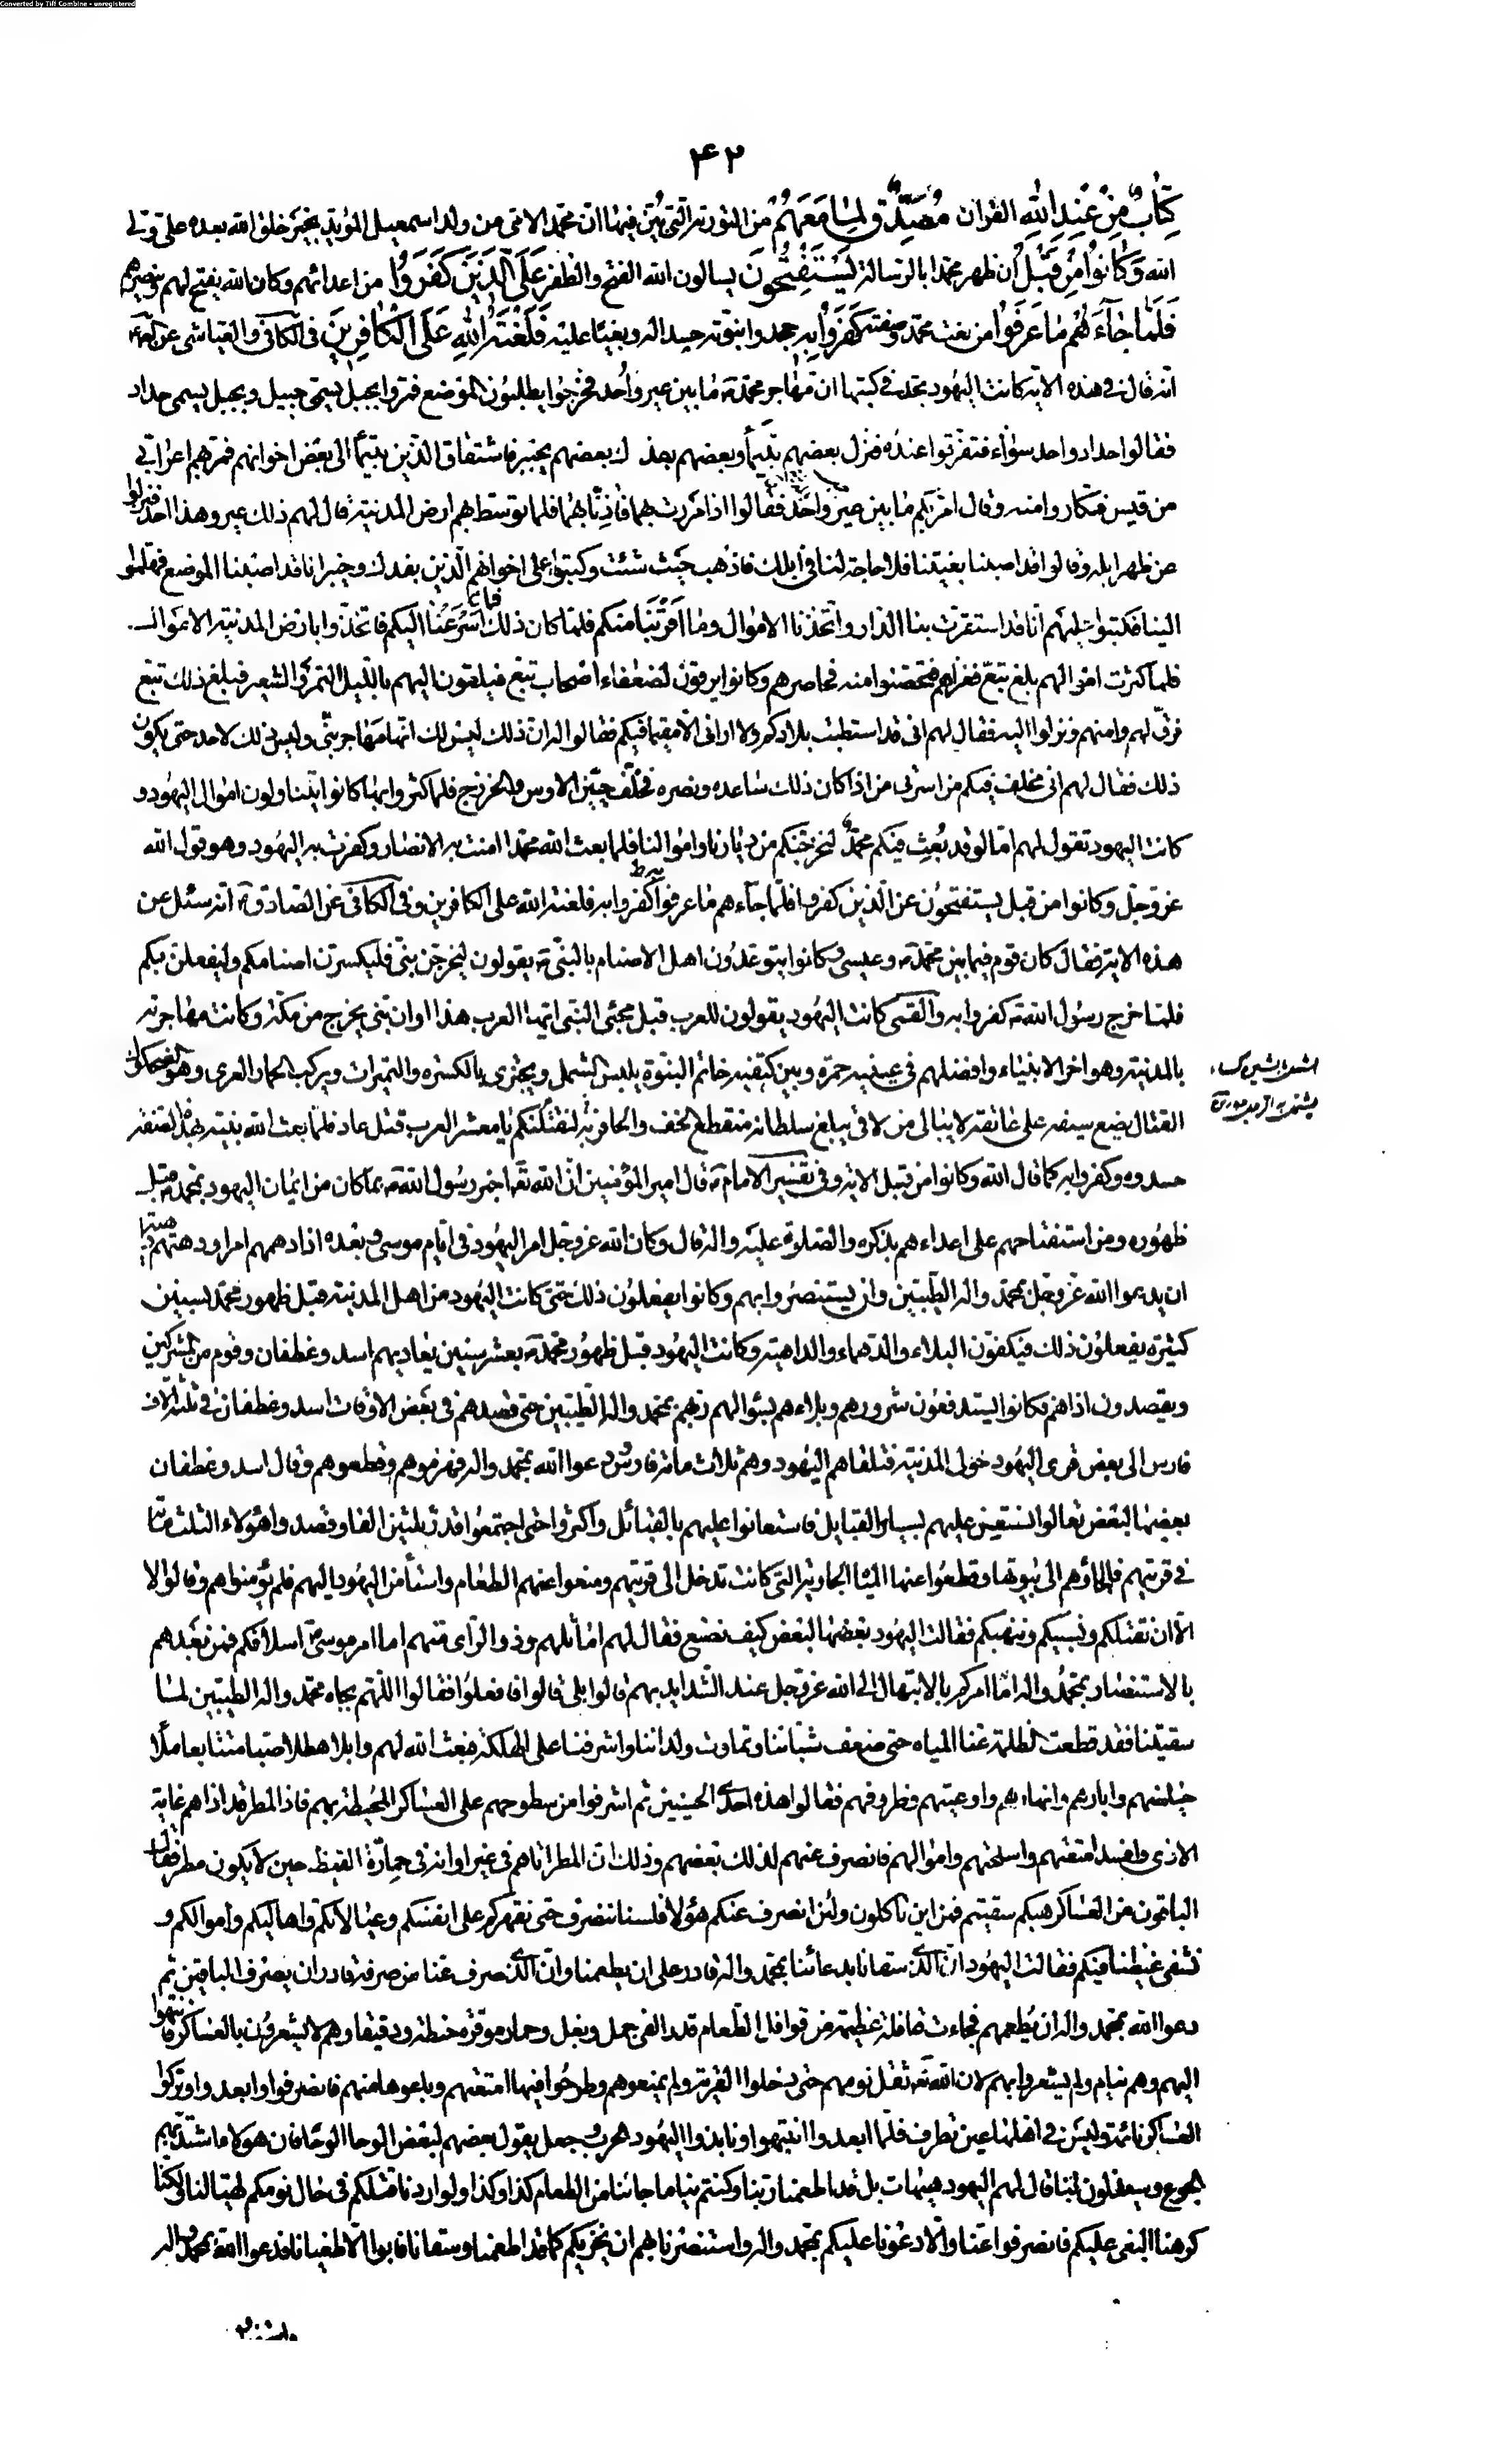 Converted by Tiff Combine - unregistered
۴۲
كِتَابٌ مِنْ عِنْدِ اللهِ القران مُصَدِّقٌ لِمَا مَعَهُمْ من التورية التي بُيّن فيها ان محمدا الامي من ولد اسمعيل المؤيد بخير خلق الله بعده علي ولي
الله وَكَانُوا مِنْ قَبْلُ ان ظهر محمد بالرسالة يَسْتَفْتِحُونَ يسالون الله الفتح والظفر عَلَى الَّذِينَ كَفَرُوا من اعدائهم وكان الله يفتح لهم وينصرهم
فَلَمَّا جَاءَهُمْ مَا عَرَفُوا من نعت محمد وصفته كَفَرُوا بِهِ جحدوا نبوته حسدا له وبغيا عليه فَلَعْنَةُ اللهِ عَلَى الْكَافِرِينَ في الكافي والعياشي عن الصادق
انه قال في هذه الاية كانت اليهود تجد في كتبها ان مهاجر محمد ص ما بين عير واُحد فخرجوا يطلبون الموضع فمروا بجبل يسمى جبيل وبجبل يسمى حداد
فقالوا حداد واحد سواء فتفرقوا عنده فنزل بعضهم بتيما وبعضهم بفدك وبعضهم بخيبر فاشتاق الذين بتيما الى بعض اخوانهم فمر بهم اعرابي
من قيس فتكاروا منه وقال امر بكم ما بين عير واحد فقالوا اذا مررت بهما فاذنا بهما فلما توسط بهم ارض المدينة قال لهم ذلك عير وهذا احد فنزلوا
عن ظهر ابله وقالوا قد اصبنا بغيتنا فلا حاجة لنا في ابلك فاذهب حيث شئت وكتبوا الى اخوانهم الذين بفدك وخيبر انا قد اصبنا الموضع فهلموا
الينا فكتبوا اليهم انا قد استقرت بنا الدار واتخذنا الاموال وما اقربنا منكم فلما كان ذلك فما اسرعنا اليكم فاتخذوا بارض المدينة الاموال
فلما كثرت اموالهم بلغ تبع فغزاهم فتحصنوا منه فحاصرهم وكانوا يرقون لضعفاء اصحاب تبع فيلقون اليهم بالليل التمر والشعير فبلغ ذلك تبع
فرق لهم وامنهم ونزلوا اليه فقال لهم اني قد استطبت بلادكم ولا اراني الا مقيما فيكم فقالوا له ان ذلك ليس لك انها مهاجر نبي وليس ذلك لاحد حتى يكون
ذلك فقال لهم اني مخلف فيكم من اسرتي من اذا كان ذلك ساعده ونصره فخلف حيين الاوس والخزرج فلما كثروا بها كانوا يتناولون اموال اليهود و
كانت اليهود تقول لهم اما لو قد بُعث فيكم محمدٌ لنخرجنكم من ديارنا واموالنا فلما بعث الله محمدا امنت به الانصار وكفرت به اليهود وهو قول الله
عز وجل وكانوا من قبل يستفتحون عن الذين كفروا فلما جاءهم ما عرفوا كفروا به فلعنة الله على الكافرين وفي الكافي عن الصادق ع انه سئل عن
هذه الاية فقال كان قوم فيما بين محمد ص وعيسى وكانوا يتوعدون اهل الاصنام بالنبي ص يقولون ليخرجن نبي فليكسرن اصنامكم وليفعلن بكم
فلما خرج رسول الله ص كفروا به والقمي كانت اليهود يقولون للعرب قبل مجئ النبي ايها العرب هذا اوان نبي يخرج من مكة وكانت مهاجرته
بالمدينة وهو اخر الانبياء وافضلهم في عينيه حمرة وبين كتفيه خاتم النبوة يلبس الشملة ويجتزي بالكسرة والتميرات ويركب الحمار العري وهو الضحوك
القتال يضع سيفه على عاتقه لا يبالي من لاقى يبلغ سلطانه منقطع الخف والحافر لنقتلنكم يا معشر العرب قتل عاد فلما بعث الله نبيه بهذه الصفة
حسدوه وكفروا به كما قال الله وكانوا من قبل الاية وفي تفسير الامام ع قال امير المؤمنين ان الله تع اخبر رسول الله ص بما كان من ايمان اليهود بمحمد ص قبل
ظهوره ومن استفتاحهم على اعداءهم بذكره والصلوة عليه واله قال وكان الله عز وجل امر اليهود في ايام موسى وبعده اذا دهمهم امر او دهتهم داهية
ان يدعوا الله عز وجل بمحمد واله الطيبين وان يستنصروا بهم وكانوا يفعلون ذلك حتى كانت اليهود من اهل المدينة قبل ظهور محمد بسنين
كثيرة يفعلون ذلك فيكفون البلاء والدهماء والداهية وكانت اليهود قبل ظهور محمد ص بعشر سنين يعاديهم اسد وغطفان وقوم من المشركين
ويقصدون اذاهم فكانوا يستدفعون شرورهم وبلاءهم بسؤالهم ربهم بمحمد واله الطيبين حتى قصدهم في بعض الاوقات اسد وغطفان في ثلثة الاف
فارس الى بعض قرى اليهود حول المدينة فتلقاهم اليهود وهم ثلاث مائة فارس ودعوا الله بمحمد واله فهزموهم وقطعوهم وقال اسد وغطفان
بعضها لبعض تعالوا نستعين عليهم بسائر القبايل فاستعانوا عليهم بالقبائل واكثروا حتى اجتمعوا قدر ثلثين الفا وقصدوا هؤلاء الثلث مائة
في قريتهم فالجاؤهم الى بيوتها وقطعوا عنها المياه الجارية التي كانت تدخل الى قريتهم ومنعوا عنهم الطعام واستأمن اليهود اليهم فلم يؤمنوهم وقالوا لا
الا ان نقتلكم ونسبيكم وننهبكم فقالت اليهود بعضها لبعض كيف نصنع فقال لهم اماثلهم وذو والراى منهم اما امر موسى اسلافكم فمن بعدهم
بالاستنصار بمحمد واله اما امركم بالابتهال الى الله عز وجل عند الشدايد بهم قالوا بلى قالوا فافعلوا فقالوا اللهم بجاه محمد واله الطيبين لما
سقيتنا فقد قطعت الظلمة عنا المياه حتى ضعف شباننا وتماوت ولداننا واشرفنا على الهلكة فبعث الله لهم وابلا هطلا
حياضهم وابارهم وانهارهم واوعيتهم وظروفهم فقالوا هذه احدى الحسنيين ثم اشرفوا من سطوحهم على العساكر المحيطة بهم فاذا المطر قد اذاهم غاية
الاذى وافسد امتعتهم واسلحتهم واموالهم فانصرف عنهم لذلك بعضهم وذلك ان المطر اتاهم في غير اوانه في حمارة القيظ حين لا يكون مطر فقال
الباقون من العساكر هبكم سقيتم فمن اين تاكلون ولئن انصرف عنكم هؤلاء فلسنا ننصرف حتى نقهركم على انفسكم وعيالاتكم واهاليكم واموالكم و
نشفي غيظنا منكم فقالت اليهود ان الذي سقانا بدعائنا بمحمد واله قادر على ان يطعمنا وان الذي صرف عنا من صرفه قادر ان يصرف الباقين ثم
دعوا الله بمحمد واله ان يطعمهم فجاءت قافلة عظيمة من قوافل الطعام قدر الفي جمل وبغل وحمار موقرة حنطة ودقيقا وهم لا يشعرون بالعساكر فانتهوا
اليهم وهم نيام ولم يشعروا بهم لان الله تع ثقل نومهم حتى دخلوا القرية ولم يمنعوهم وطرحوا فيها امتعتهم وباعوها منهم فانصرفوا وابعدوا وتركوا
العساكر نائمة وليس في اهلها عين تطرف فلما ابعدوا انتبهوا ونابذوا اليهود الحرب وجعل يقول بعضهم لبعض الوحا الوحا فان هؤلاء اشتد بهم
الجوع وسيذلون لنا قال لهم اليهود هيهات بل قد اطعمنا ربنا وكنتم نياما جائنا من الطعام كذا وكذا ولو اردنا قتلكم في حال نومكم لتهيا لنا ولكنا
كرهنا البغي عليكم فانصرفوا عنا والا دعونا عليكم بمحمد واله واستنصرنا بهم ان يخزيكم كما قد اطعمنا وسقانا فابوا الا طغيانا فدعوا الله بمحمد واله